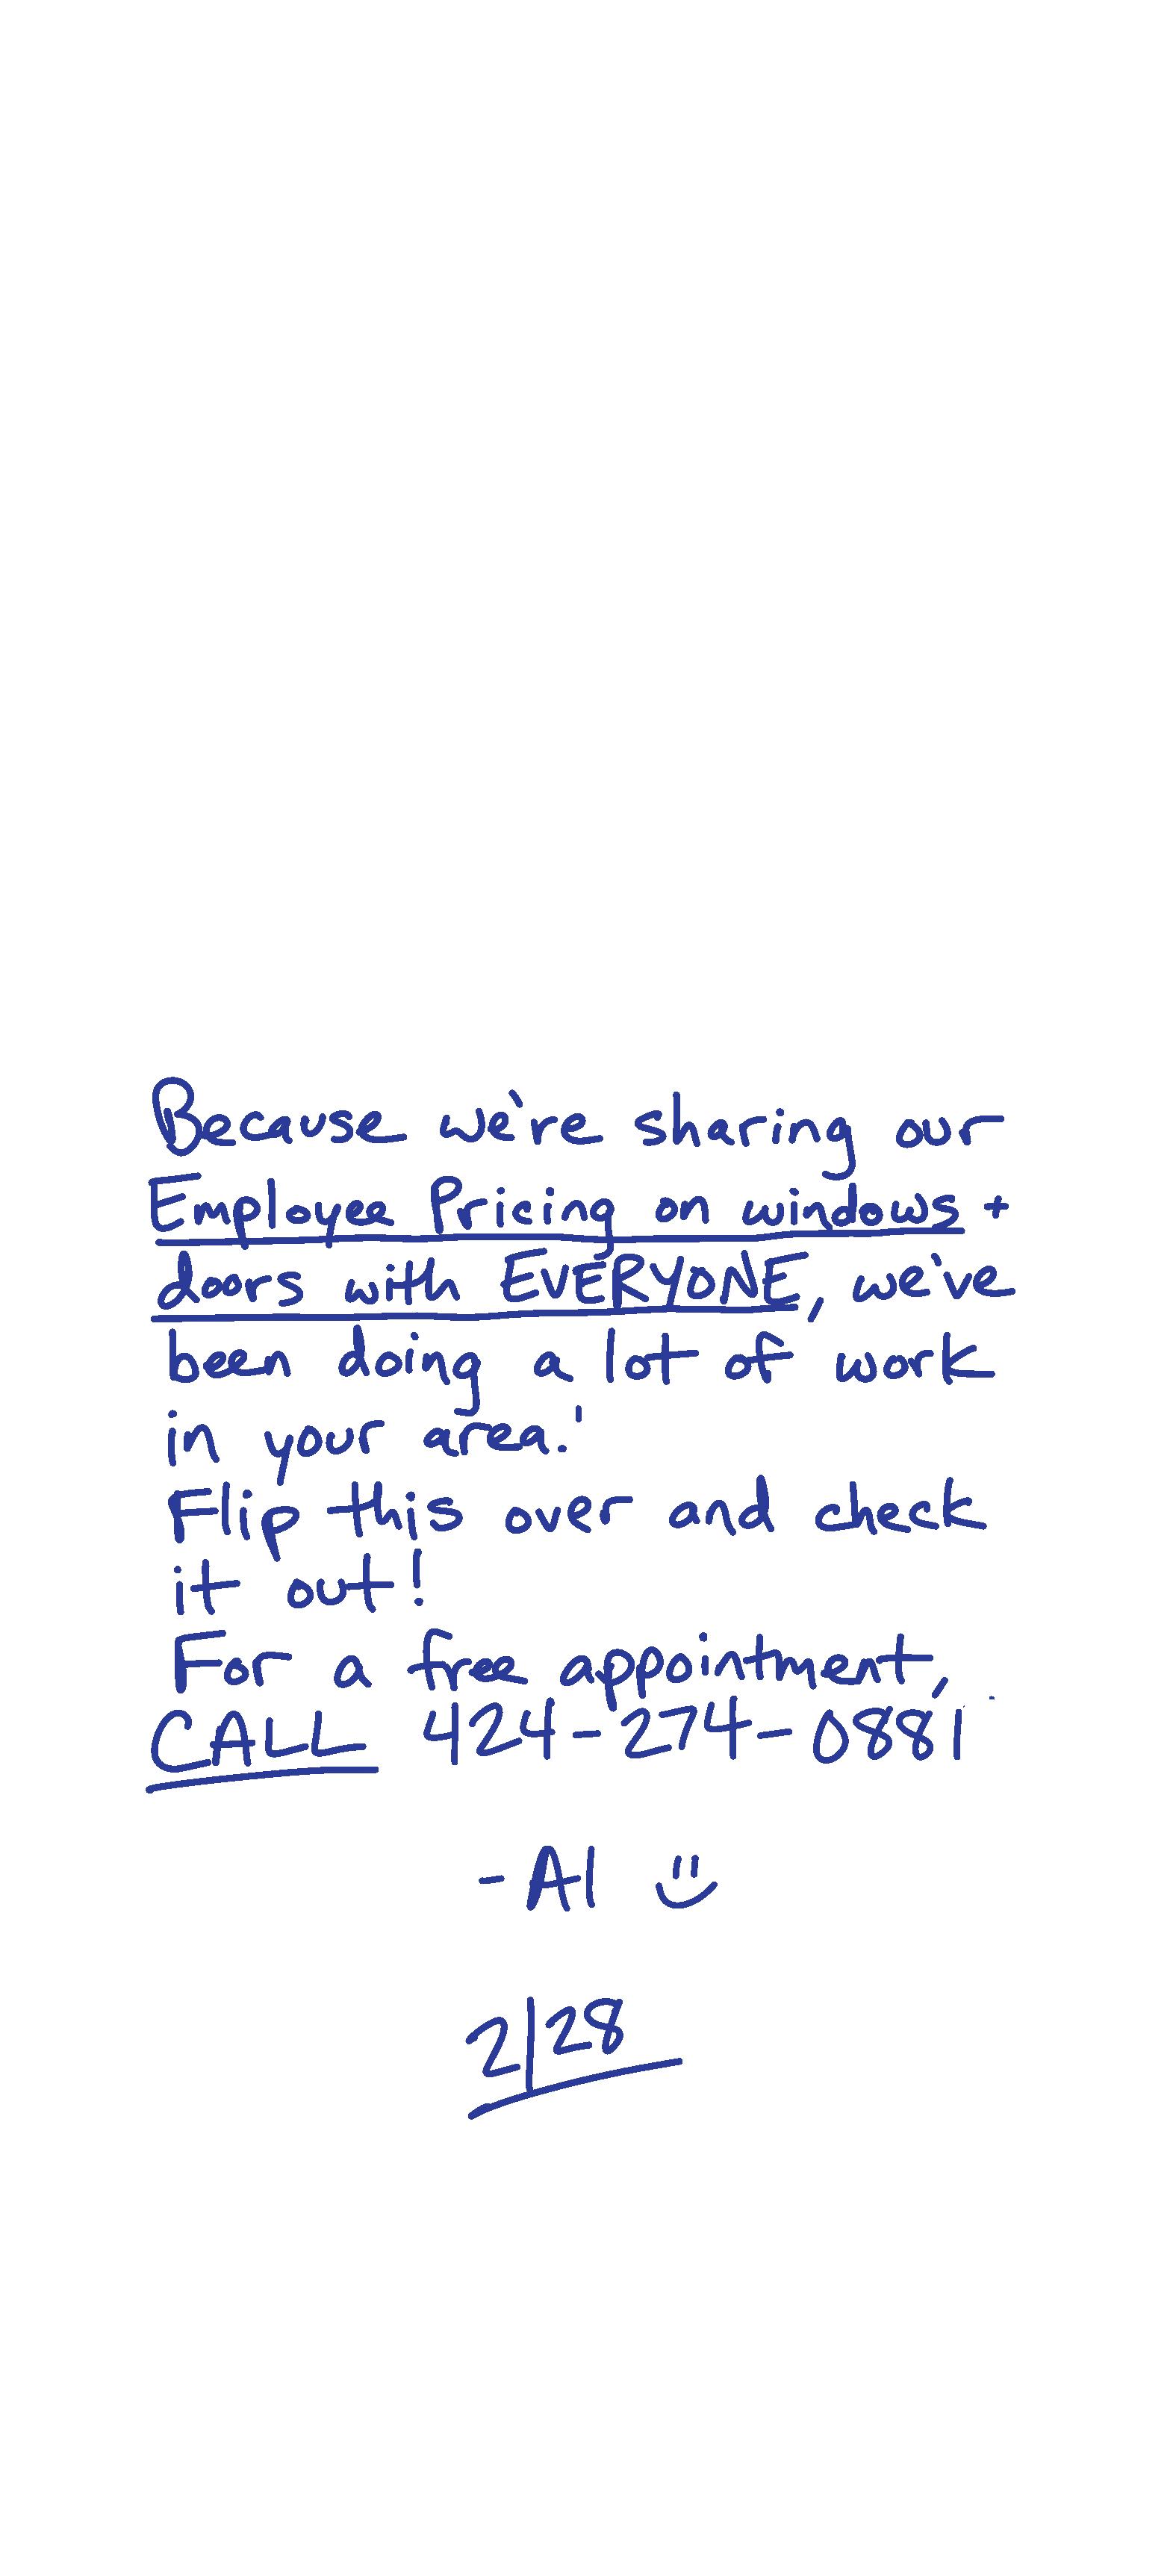 Because we're sharing our
Employee Pricing on windows +
doors with EVERYONE, we've
been doing a lot of work
in your area.'
Flip this over and check
it out!
For a free appointment,
CALL 424-274-0881
- Al :)
2/28